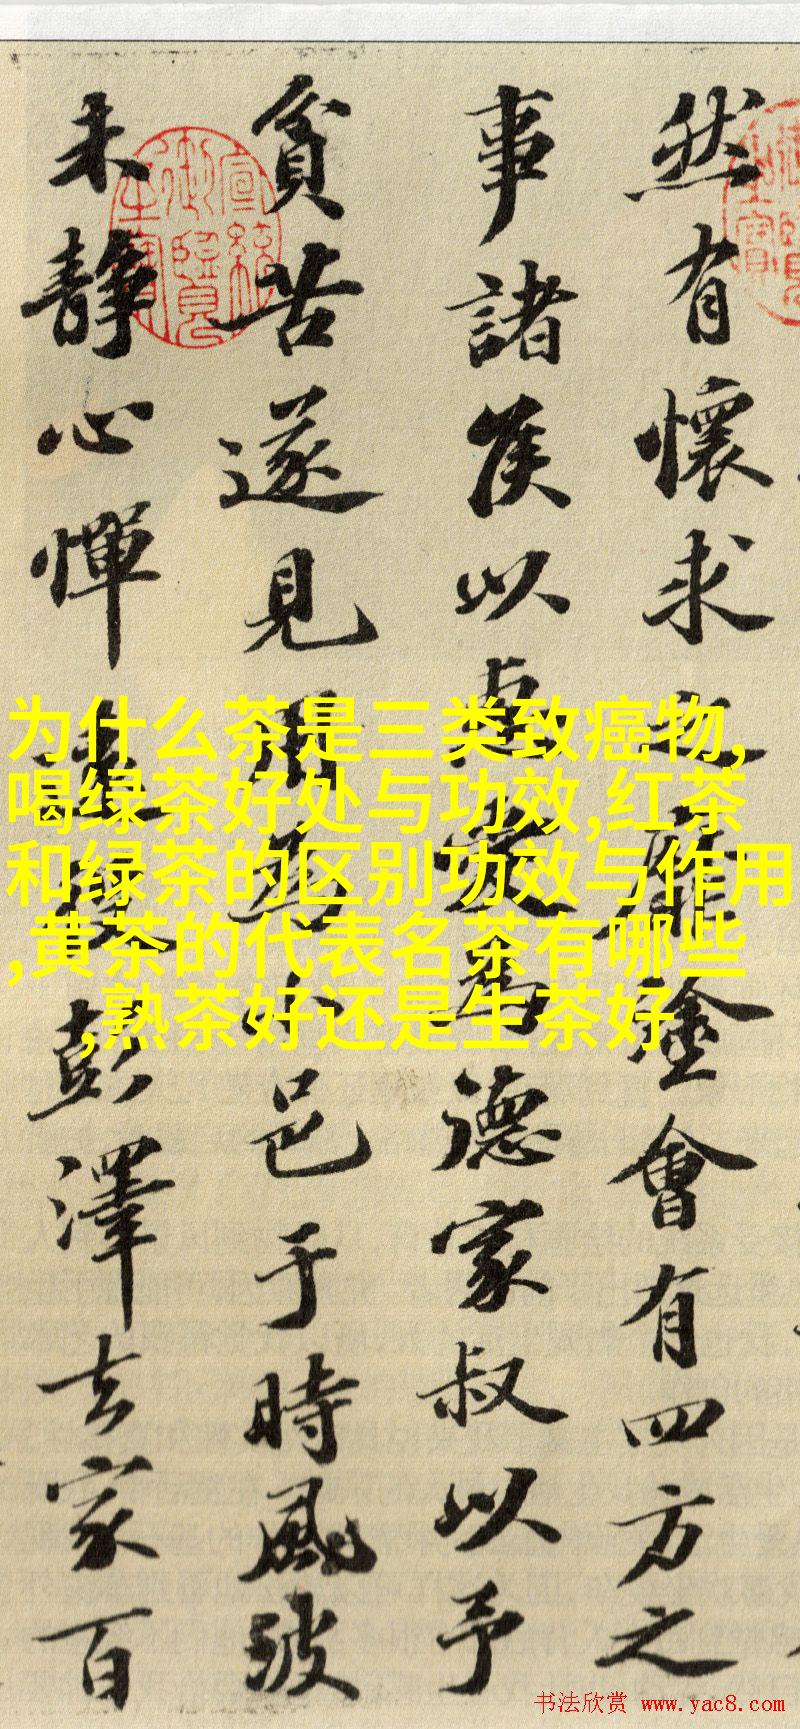 然有懷求之靡塗會有四方之
事諸侯以惠愛為德家叔以予
貧苦遂見用為小邑于時風波
未靜心憚遠役彭澤去家百
宣統御覽之寶
为什么茶是三类致癌物,
喝绿茶好处与功效,红茶
和绿茶的区别功效与作用
,黄茶的代表名茶有哪些
,熟茶好还是生茶好
书法欣赏 www.yac8.com